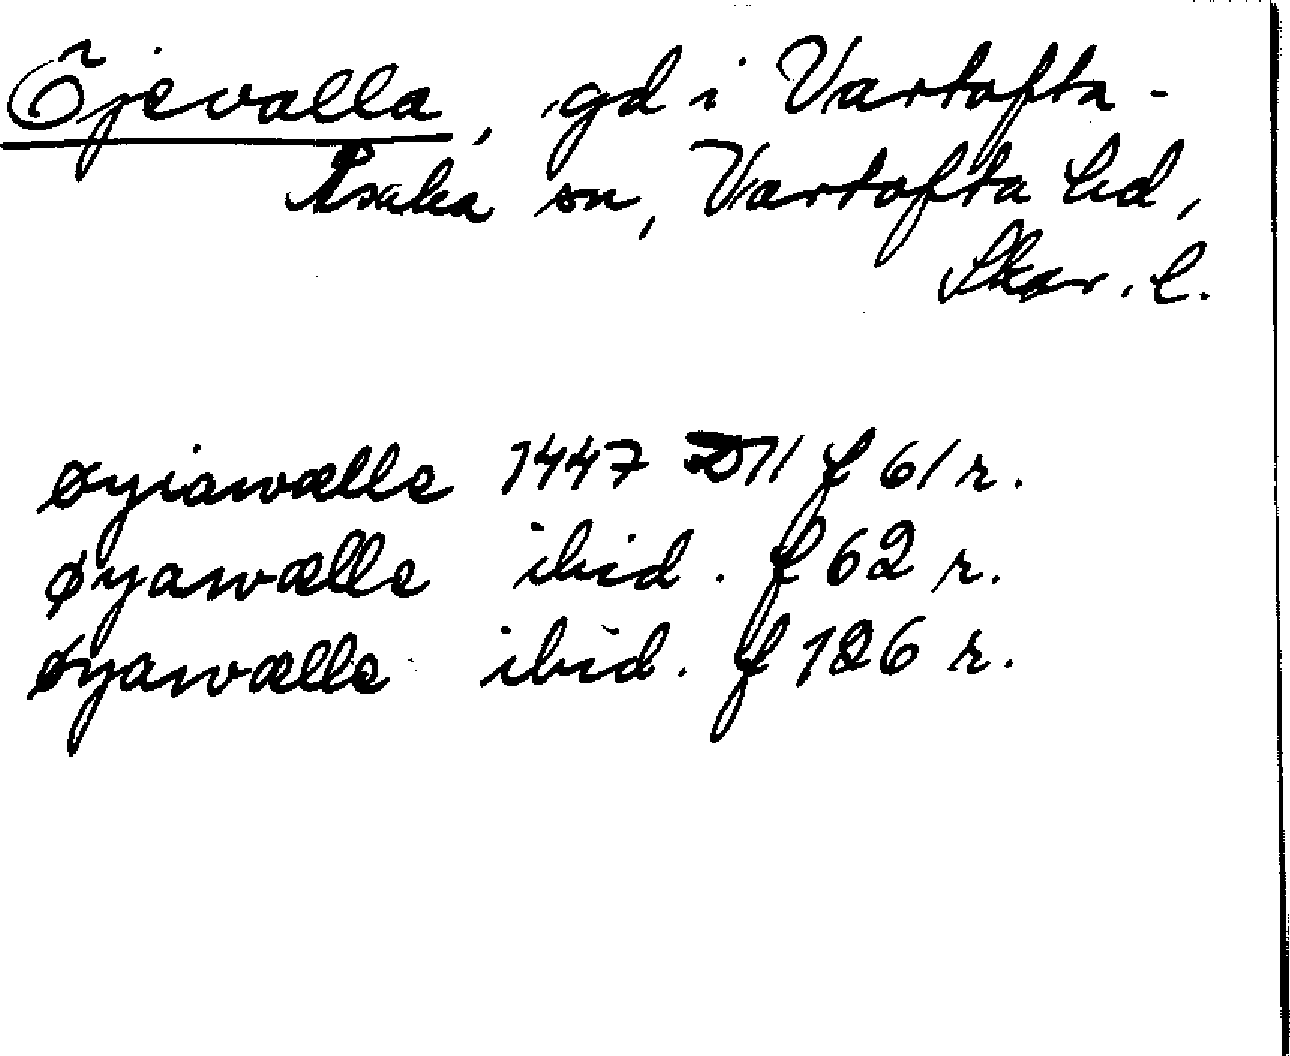 Öjevalla, gd i Vartofta-
Åsaka sn, Vartofta hd,
Skar. l.
øyiawælle 1447 D 11 f 61 r.
øyawælle ibid. f 62 r.
øyawælle ibid. f 126 r.